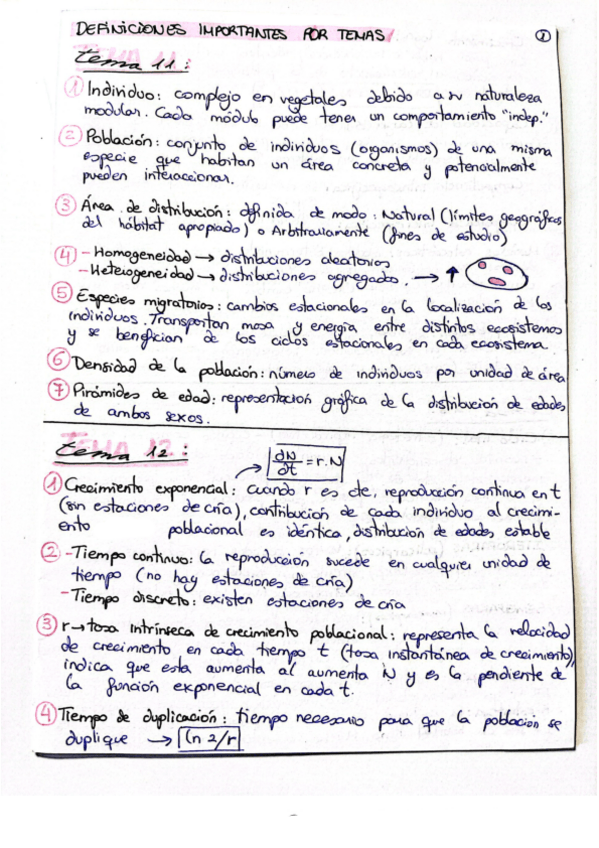 DEFINICIONES IMPORTANTES POR TEMAS
1
tema 11:
① Individuo: complejo en vegetales debido a su naturaleza
modular. Cada módulo puede tener un comportamiento "indep."
② Población: conjunto de individuos (organismos) de una misma
especie que habitan un área concreta y potencialmente
pueden interaccionar.
③ Área de distribución: definida de modo: Natural (límites geográficos
del hábitat apropiado) o Arbitrariamente (fines de estudio)
④ - Homogeneidad → distribuciones aleatorias
- Heterogeneidad → distribuciones agregadas. → ↑
⑤ Especies migratorias: cambios estacionales en la localización de los
individuos. Transportan masa y energía entre distintos ecosistemas
y se benefician de los ciclos estacionales en cada ecosistema.
⑥ Densidad de la población: número de individuos por unidad de área
⑦ Pirámides de edad: representación gráfica de la distribución de edades
de ambos sexos.
tema 12:
dN/dt = r.N
① Crecimiento exponencial: cuando r es cte, reproducción continua en t
(sin estaciones de cría), contribución de cada individuo al crecimi-
ento poblacional es idéntica, distribución de edades estable
② - Tiempo continuo: la reproducción sucede en cualquier unidad de
tiempo (no hay estaciones de cría)
- Tiempo discreto: existen estaciones de cría
③ r → tasa intrínseca de crecimiento poblacional: representa la velocidad
de crecimiento en cada tiempo t (tasa instantánea de crecimiento),
indica que esta aumenta al aumenta N y es la pendiente de
la función exponencial en cada t.
④ Tiempo de duplicación: tiempo necesario para que la población se
duplique → ln 2/r